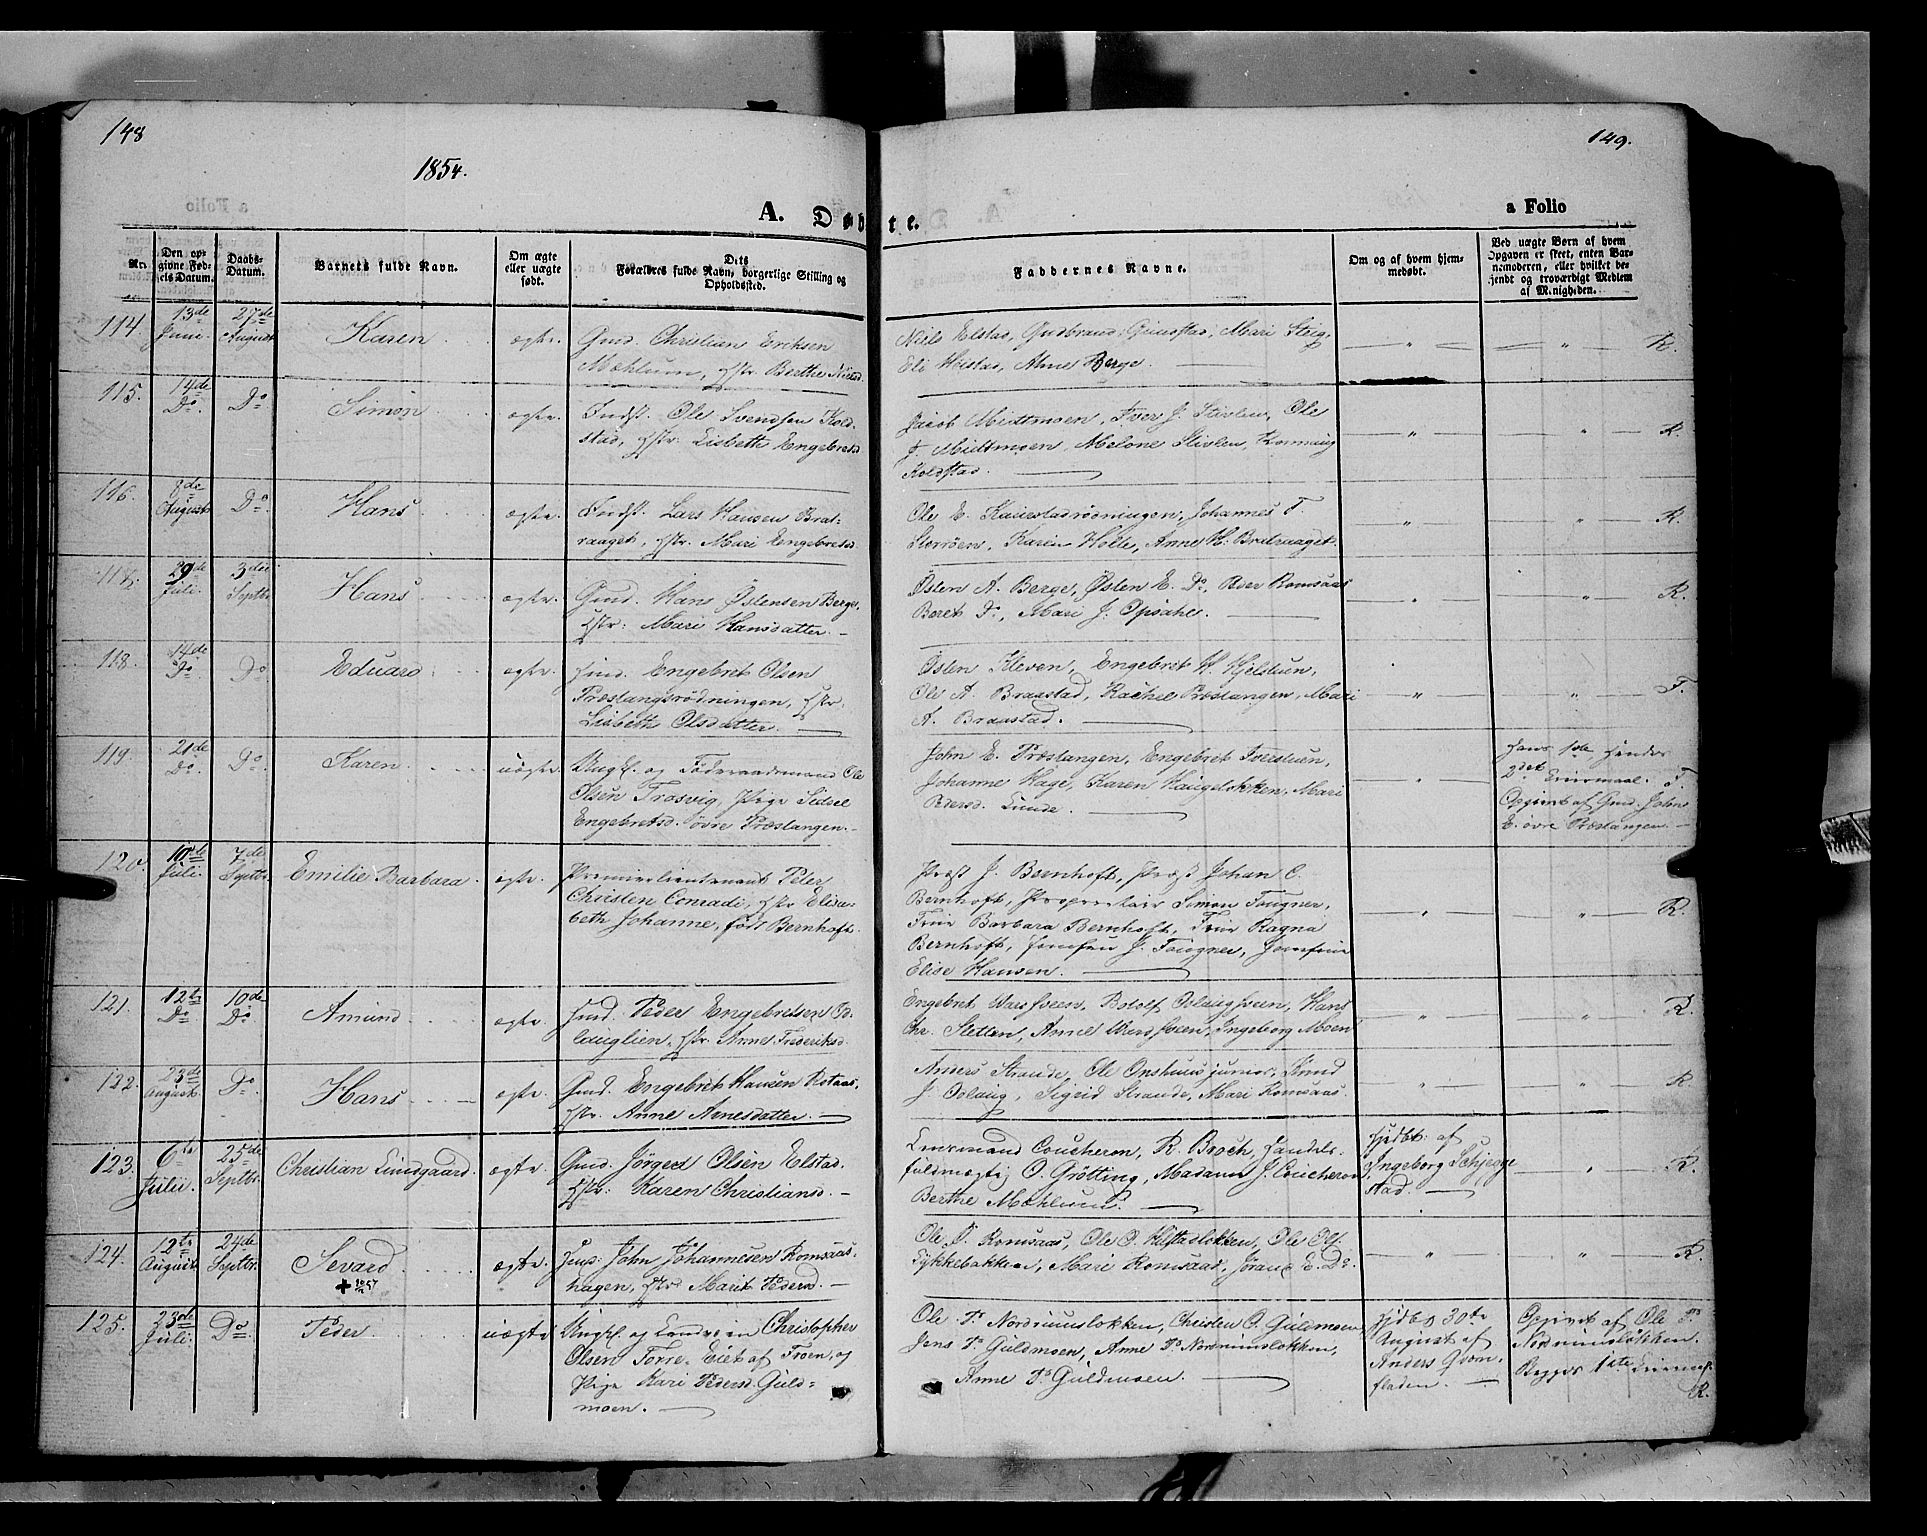 148
149.
1854.
A. Døbte.
a Folio
Nr.
Den opgivne Fødselsdatum.
Daabs-Datum.
Barnets fulde Navn.
Om ægte eller uægte født.
Dets Forældres fulde Navn, borgerlige Stilling og Opholdssted.
Faddernes Navne.
Om og af hvem hjemmedøbt.
Ved uægte Børn af hvem Opgaven er skeet, enten Barnemoderen, eller hvilket bekjendt og troværdigt Medlem af Menigheden.
114. 13de Juni. 27de August Karen ægte. Gmd. Christian Eriksen
Mæhlum, Hstr. Berthe
Niels Elstad, Gudbrand Grimstad, Mari Steig,
Eli Anne Berge.
" " R.
115. 14de Do. Do Simon ægte. Indst. Ole Svendsen Kold-
stad, Hstr. Lisbeth Engebretsd
Jacob Midtmoen, Iver J. Stivlen, Ole
J. Midtmoen, Malone Stivlen, Ronnaug
Koldstad.
" " R.
116. 8de August Do Hans ægte. Indst. Lars Hansen Brat-
raaget, Hstr. Mari Engebretsd
Ole E. Johannes F.
Storröen, Karen Holte, Anne H. Bratraaget.
" " R.
117. 29de Juli. 3die Septbr Hans ægte. Gmd. Hans Østensen Berge,
Hstr: Mari Hansdatter.
Østen A. Berge, Østen E. Do, Iver Romsaas
Beret Do, Mari J. Opsahl.
" " R.
118. 14de Do. Do Eduard ægte. Engebret Olsen
Præstangsrødningen, Hstr.
Lisbeth Olsdatter.
Østen Kleven, Engebret H. Kjelstuen,
Ole A. Braastad, Rachel Præstangen, Mari
A. Braastad.
" " T.
119. 21de Do. Do. Karen uægte. Ungk. og Føderaadsmand Ole
Olsen Trosvig, Pige Sidsel
Engebretsd. øvre Præstangen.
John E. Præstangen, Engebret Iverstuen,
Johanne Hage, Karen Haugeløkken, Mari
Pedersd. Lunde.
" Hans 1ste, Hendes
2det Leiermaal. T.
Opgivet af Gmd. John
E. øvre Præstangen.
120. 10de Juli. 7de Septbr. Emilie Barbara ægte. Premierlieutenant Peter
Christen Conradi, Hstr Elisa-
beth Johanne, født Bernhoft.
Præst J. Bernhoft, Præst Johan C.
Bernhoft, Proprietair Simon Tougner,
Frue Barbara Bernhoft, Frue Ragna
Bernhoft, Jomfru J. Tougner, Jomfrue
Elise Hansen.
" " R.
121. 12te Do 10de Do Amund ægte. Peder Engebretsen Os-
lauglien, Hstr. Anne Frederiksd.
Engebret Botolf Oslaugsveen, Hans
Chr. Sletten, Anne Ingeborg Moen
" " R.
122. 23de August. Do. Hans ægte. Gmd. Engebret Hansen Rotaas,
Hstr. Anne Arnesdatter.
Anders Strande, Ole Onshuus junior, Knud
J. Oslaug, Sigrid Strande, Mari Romsaas.
" " R.
123. 6te Julii. 25de Septbr. Christian Lundgaard. ægte. Gmd. Jörgen Olsen Elstad.
Hstr. Karen Christiansd.
Lensmand Coucheron, R. Broch, Handels-
fuldmægtig O. Grötting, Madame J. Coucheron
Berthe Mæhlum.
Hjdbt. af
Ingeborg Schjegge-
stad.
" R.
124. 12te August 24de Septbr. Sevard ægte John Johannesen Romsaas-
hagen, Hstr. Marit Pedersd.
Ole P. Romsaas, Ole O. Ole Ols.
Tykkebakken, Mari Romsaas, Jöran E. Do.
" " R.
125. 23de Juli. Do Peder uægte Ungk. og Landværn Christopher
Olsen Torre-Eiet af Froen, og
Pige Kari Pedersd. Guld-
moen.
Ole P. Nordrumsløkken, Christen O. Guldmoen,
Jens P. Guldmoen, Anne P. Nordrumsløkken,
Anne P. Guldmoen.
Hjdbt 30te
August af
Anders
Opgivet af Ole P.
Nordrumsløkken.
Begges 1ste Leiermaal.
R.